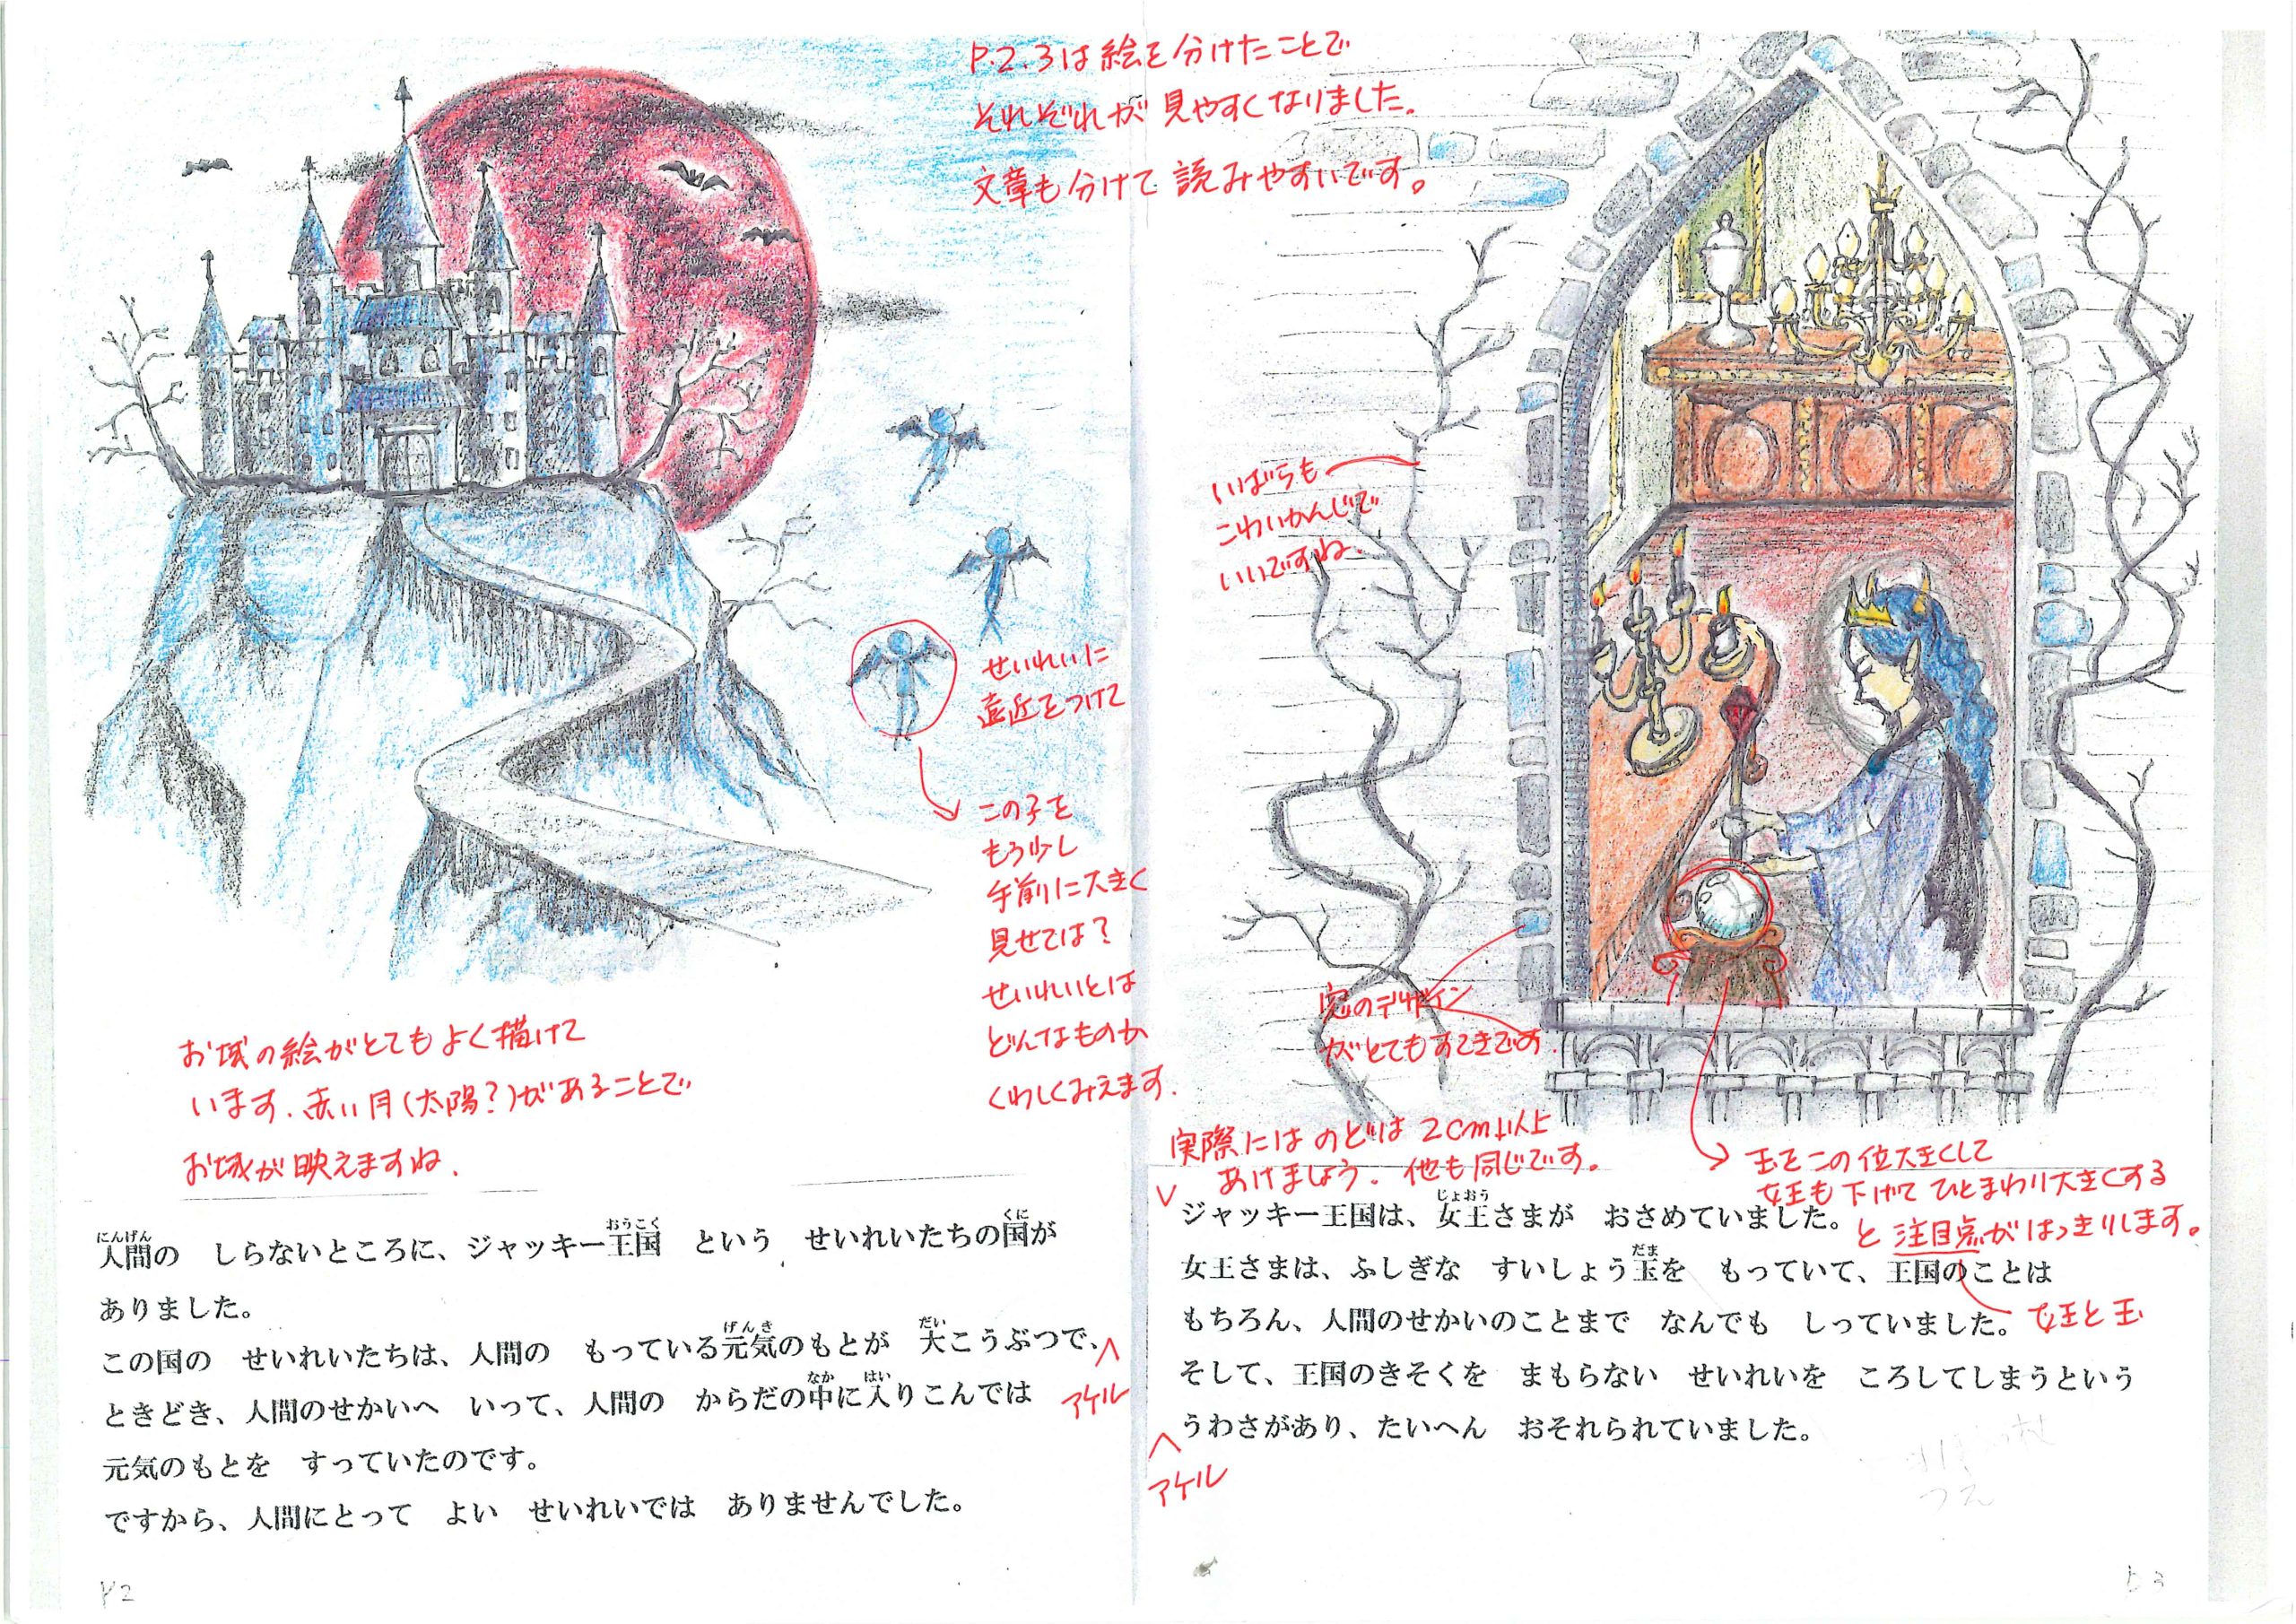 P.2.3は絵を分けたことで
それぞれが見やすくなりました。
文章も分けて読みやすいです。
せいれいに
遠近をつけて
この子を
もう少し
手前に大きく
見せては?
せいれいとは
どんなものか
くわしくみえます.
お城の絵がとてもよく描けて
います.赤い月(太陽?)があることで
お城が映えますね.
にんげん おうこく くに
人間の　しらないところに、ジャッキー王国　という　せいれいたちの国が
ありました。
げんき だい
この国の　せいれいたちは、人間の　もっている元気のもとが　大こうぶつで、
なか はい
ときどき、人間のせかいへ　いって、人間の　からだの中に入りこんでは
アケル
元気のもとを　すっていたのです。
ですから、人間にとって　よい　せいれいでは　ありませんでした。
P2
いばらも
こわいかんじで
いいですね.
窓のデザイン
がとてもすてきです.
実際にはのどは2cm以上
あけましょう.他も同じです。
玉をこの位大きくして
女王も下げてひとまわり大きくする
と注目点がはっきりします。
女王と玉
じょおう
ジャッキー王国は、女王さまが　おさめていました。
だま
女王さまは、ふしぎな　すいしょう玉を　もっていて、王国のことは
もちろん、人間のせかいのことまで　なんでも　しっていました。
そして、王国のきそくを　まもらない　せいれいを　ころしてしまうという
うわさがあり、たいへん　おそれられていました。
アケル
つえ
P3